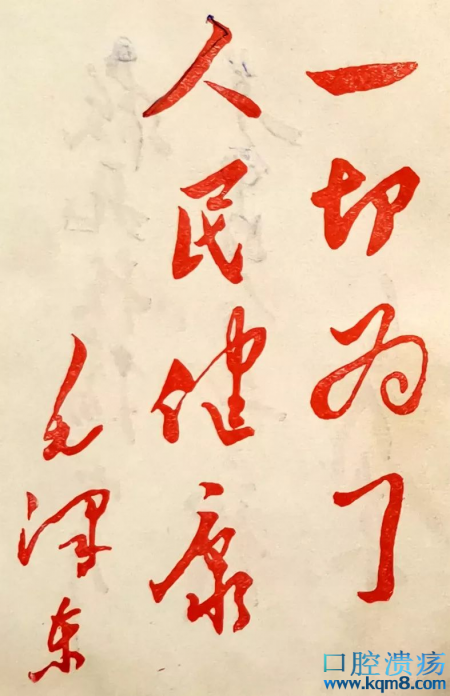 一切为了
人民健康
毛泽东
口腔溃疡
www.kqm8.com